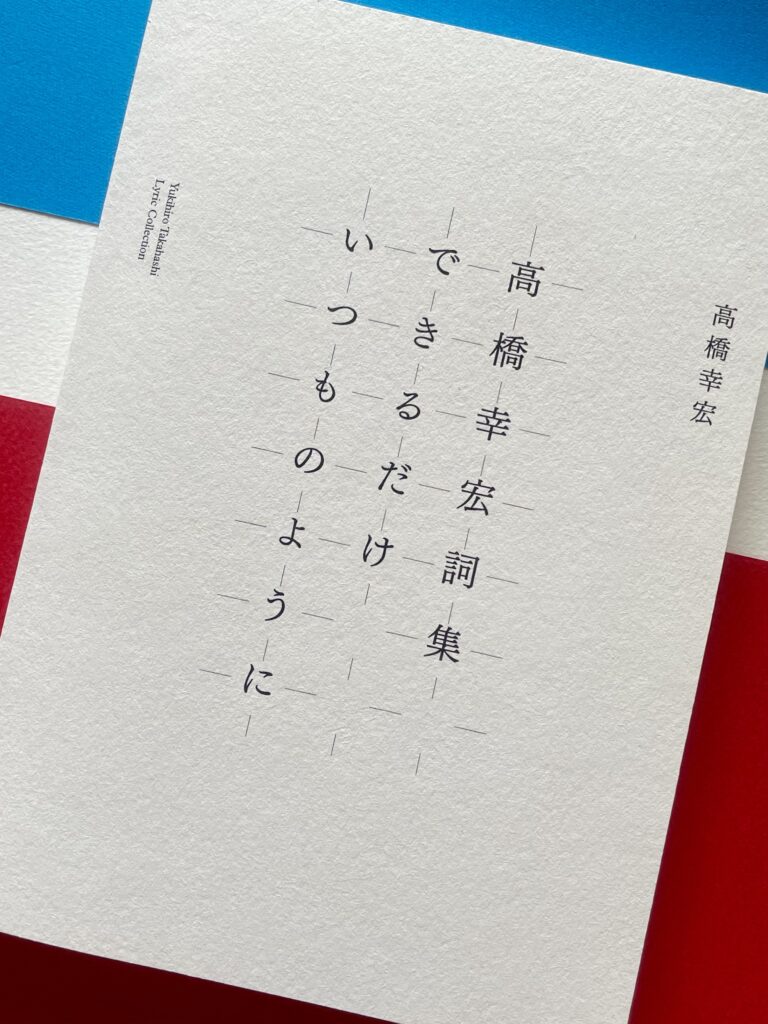 高橋幸宏
高橋幸宏詞集
できるだけ
いつものように
Yukihiro Takahashi
Lyric Collection